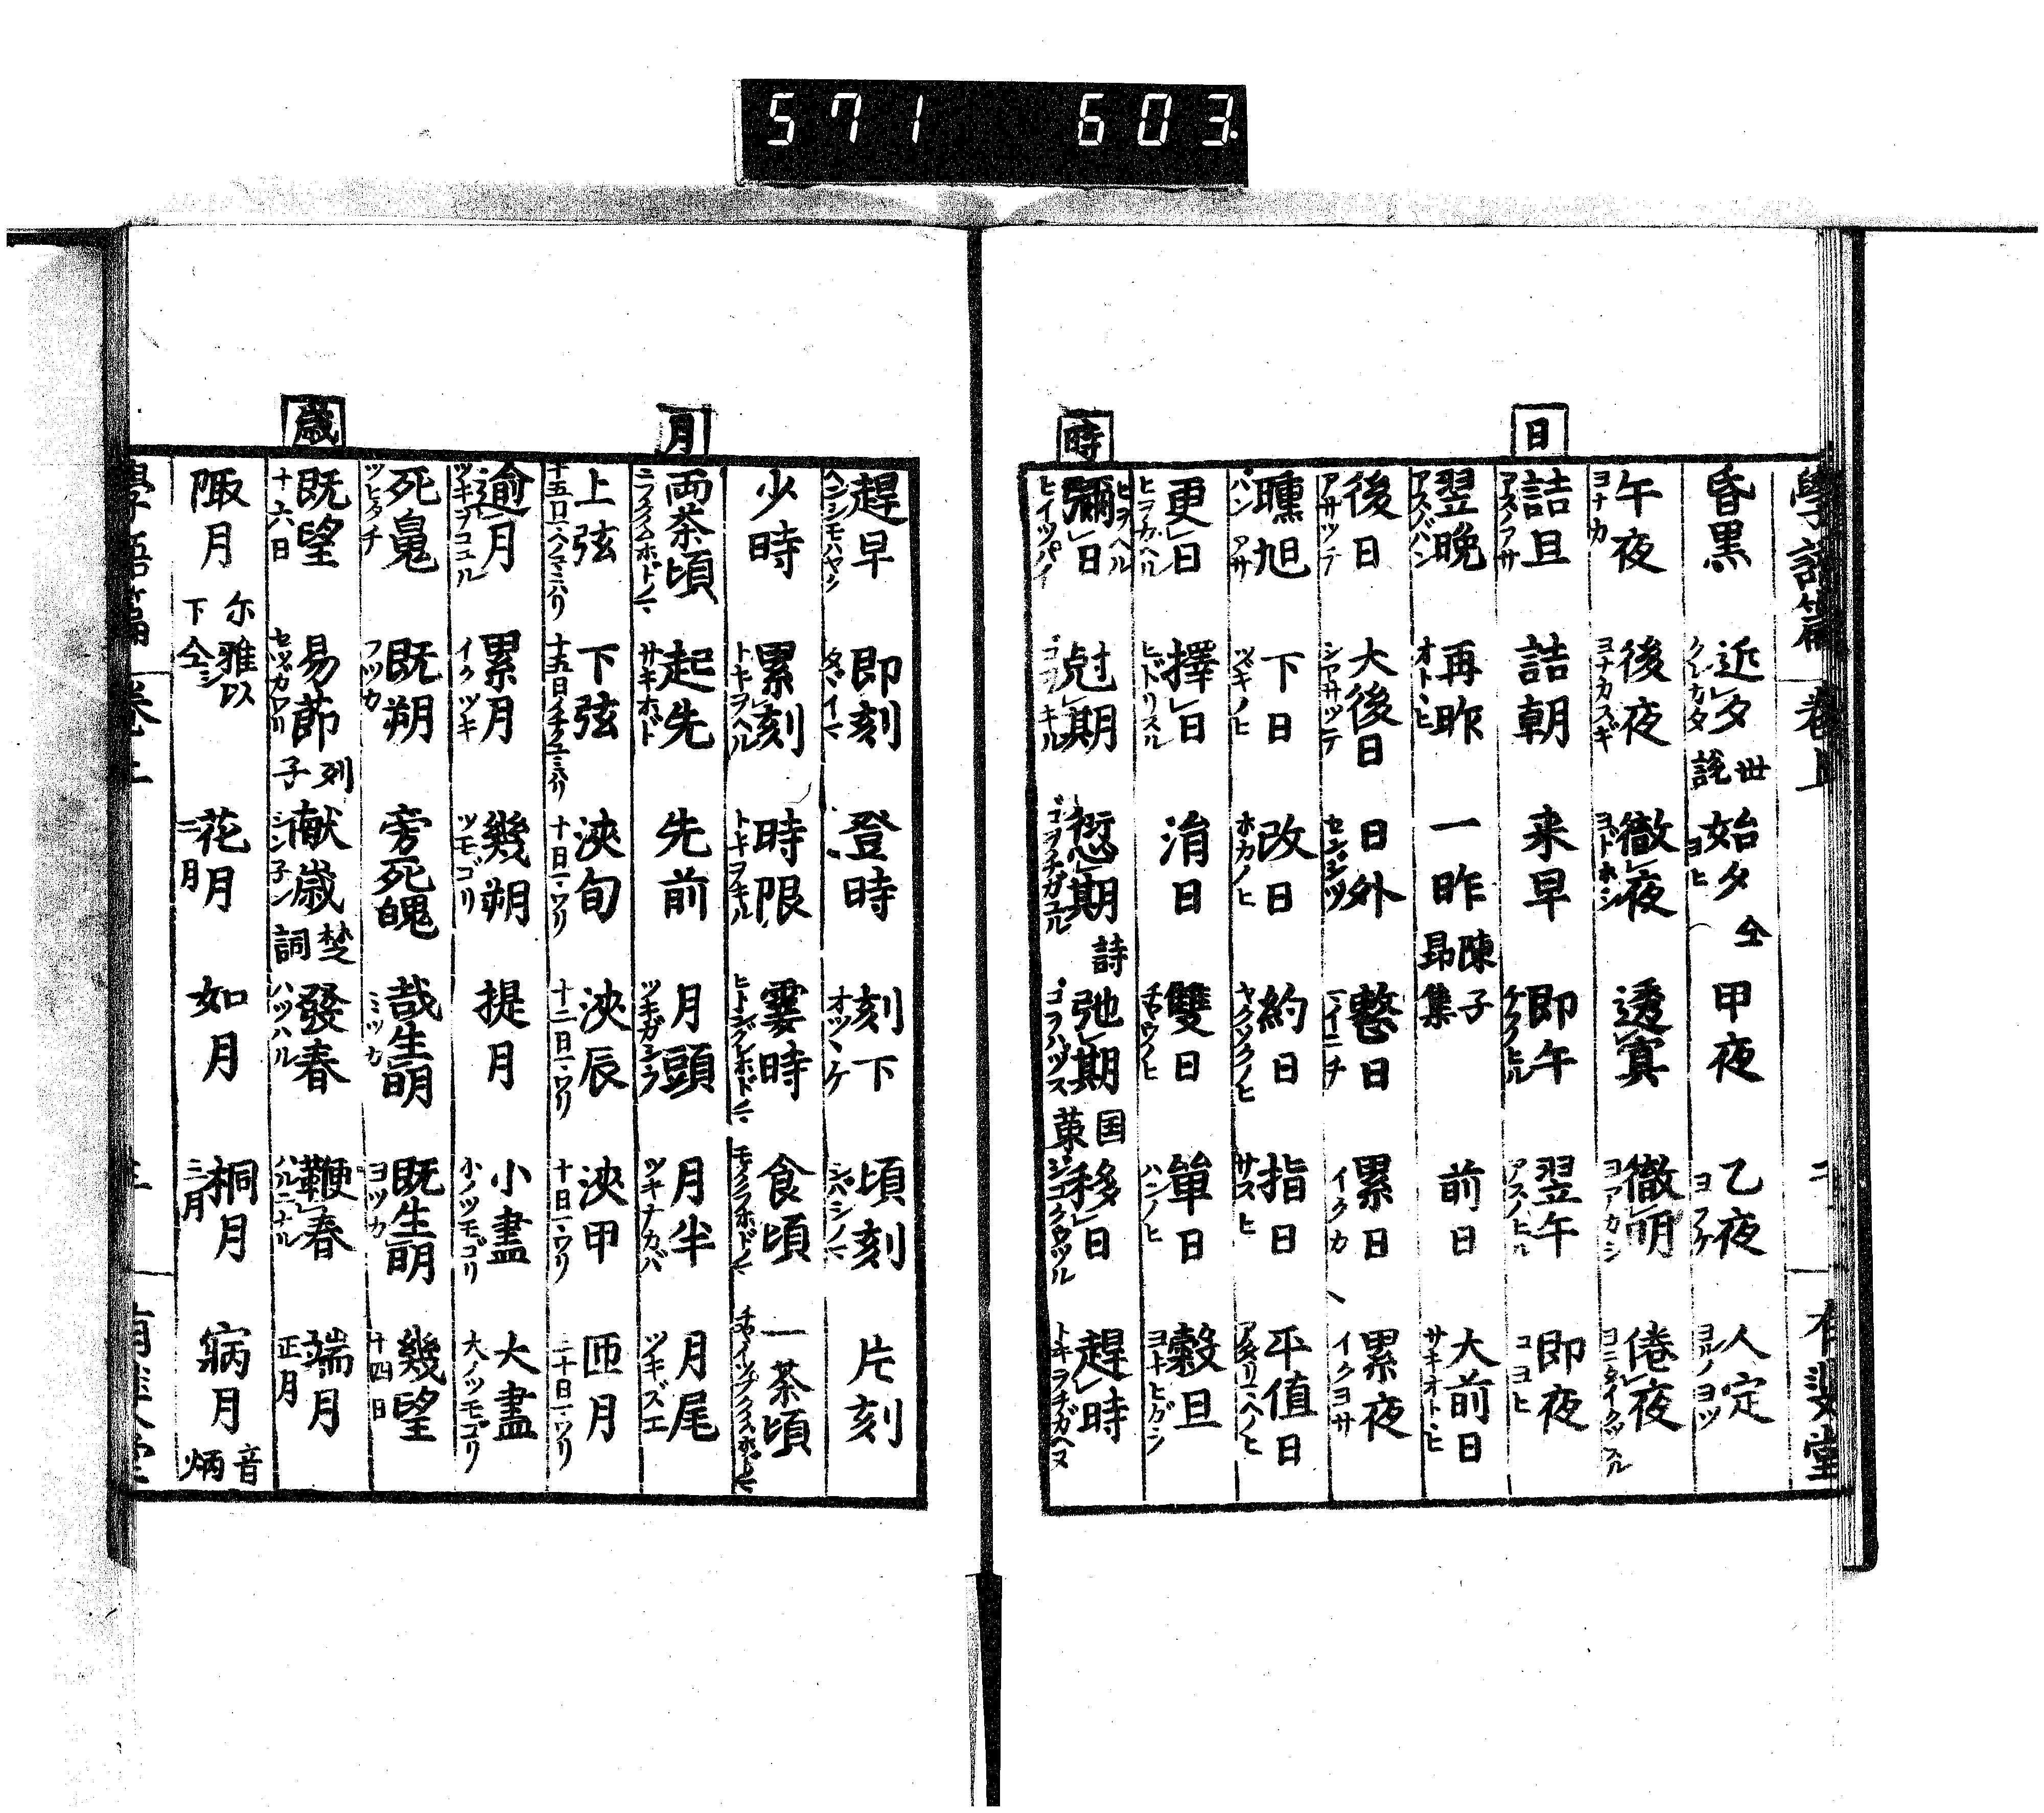 571 603.
學語篇 卷上 有斐堂
昏黒 近夕 クレカタ 世説 始夕 ヨヒ 仝 甲夜 乙夜 ヨフケ 人定 ヨルノヨツ
午夜 ヨナカ 後夜 ヨナカスギ 徹夜 ヨドホシ 透冥 徹明 ヨアカシ 倦夜
日
詰旦 アスノアサ 詰朝 来早 即午 ケフノヒル 翌午 アスノヒル 即夜 コヨヒ
翌晩 アスノバン 再昨 オトヽヒ 一昨 陳子昻集 前日 大前日 サキオトヽヒ
後日 アサツテ 大後日 シアサツテ 日外 センジツ 整日 一イニチ 累日 イクカ 累夜 イクヨサ
曛旭 バン アサ 下日 ツギノヒ 改日 ホカノヒ 約日 ヤクソクノヒ 指日 サスヒ 平值日
更日 ヒヲカヘル 擇日 ヒドリスル 涓日 雙日 チヤウノヒ 單日 ハンノヒ 穀旦
時
彌日 ヒヲヘル ヒイツパイ 尅期 ゴヲキル 愆期 ゴヲチガユル 詩 弛期 ゴヲハヅス 国策 移日 ジコクウツル 趕時 トキヲチガヘヌ
趕早 ヘンシモハヤク 即刻 タヾイマ 登時 刻下 オツヽケ 頃刻 シバシノマ 片刻
少時 累刻 トキヲヘル 時限 トキヲキル 霎時 食頃 一茶頃
月
両茶頃 起先 サキホド 先前 月頭 ツキガシラ 月半 ツキナカバ 月尾 ツキズエ
上弦 下弦 浹旬 十日一ワリ 浹辰 十二日一ワリ 浹甲 十日一ワリ 匝月 三十日一ワリ
逾月 ツキヲコユル 累月 イクツキ 幾朔 ツモゴリ 提月 小盡 小ノツモゴリ 大盡 大ノツモゴリ
死魄 ツヒタチ 既朔 フツカ 旁死魄 哉生明 ミツカ 既生明 ヨツカ 幾望 十四日
歳
既望 十六日 易節 セツガワリ 列子 献歳 シン子ン 楚詞 發春 ハツハル 鞭春 ハルニナル 端月 正月
陬月 尓雅以下仝シ 花月 二月 如月 桐月 三月 寎月 音炳
學語篇 卷上